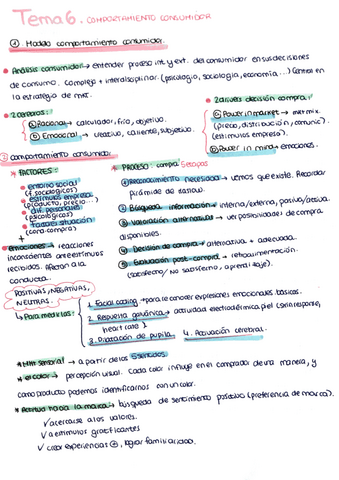 Tema 6. COMPORTAMIENTO CONSUMIDOR
① Modelo comportamiento consumidor.
• Análisis consumidor → entender proceso int y ext. del consumidor en sus decisiones
de consumo. Complejo + interdisciplinar (psicología, sociología, economía...) Centra en
la estrategia de mkt.
• 2 cerebros:
ⓐ Racional → calculador, frío, objetivo.
ⓑ Emocional → creativo, caliente, subjetivo.
• 2 drivers decisión compra:
ⓐ Power in market → mkt mix.
(precio, distribución, comunic).
(estímulos empresa).
ⓑ Power in mind → emociones.
② comportamiento consumidor.
* FACTORES:
• entorno social
(f. sociológicos)
• estímulos empresa
(producto, precio...)
• dif. personales
(psicológicos)
• factores situación
(cada compra)
+
emociones → reacciones
inconscientes ante estímulos
recibidos. Afectan a la
conducta.
* PROCESO: compra. 5 etapas
1 Reconocimiento necesidad → vemos que existe. Recordar
pirámide de Maslow.
2 Búsqueda información → interna/externa, pasiva/activa.
3 Valoración alternativa → ver posibilidades de compra
disponibles.
4 Decisión de compra → alternativa + adecuada.
5 Evaluación post-compra → retroalimentación.
(satisfecho/ No satisfecho, aprendizaje).
POSITIVAS, NEGATIVAS,
NEUTRAS.
↳ Para medirlas:
1. Facial coding → para reconocer expresiones emocionales básicas.
2. Respuesta galvánica → actividad electrodérmica piel (skin response,
heart rate)
3. Dilatación de pupila. 4. Activación cerebral.
* Mkt sensorial → a partir de los 5 sentidos.
* el color → percepción visual. Cada color influye en el comprador de una manera, y
como producto podemos identificarnos con un color.
* Actitud hacia la marca → búsqueda de sentimiento positivo (preferencia de marca).
✓ acercarse a los valores.
✓ a estímulos gratificantes
✓ crear experiencias ⊕, lograr familiaridad.